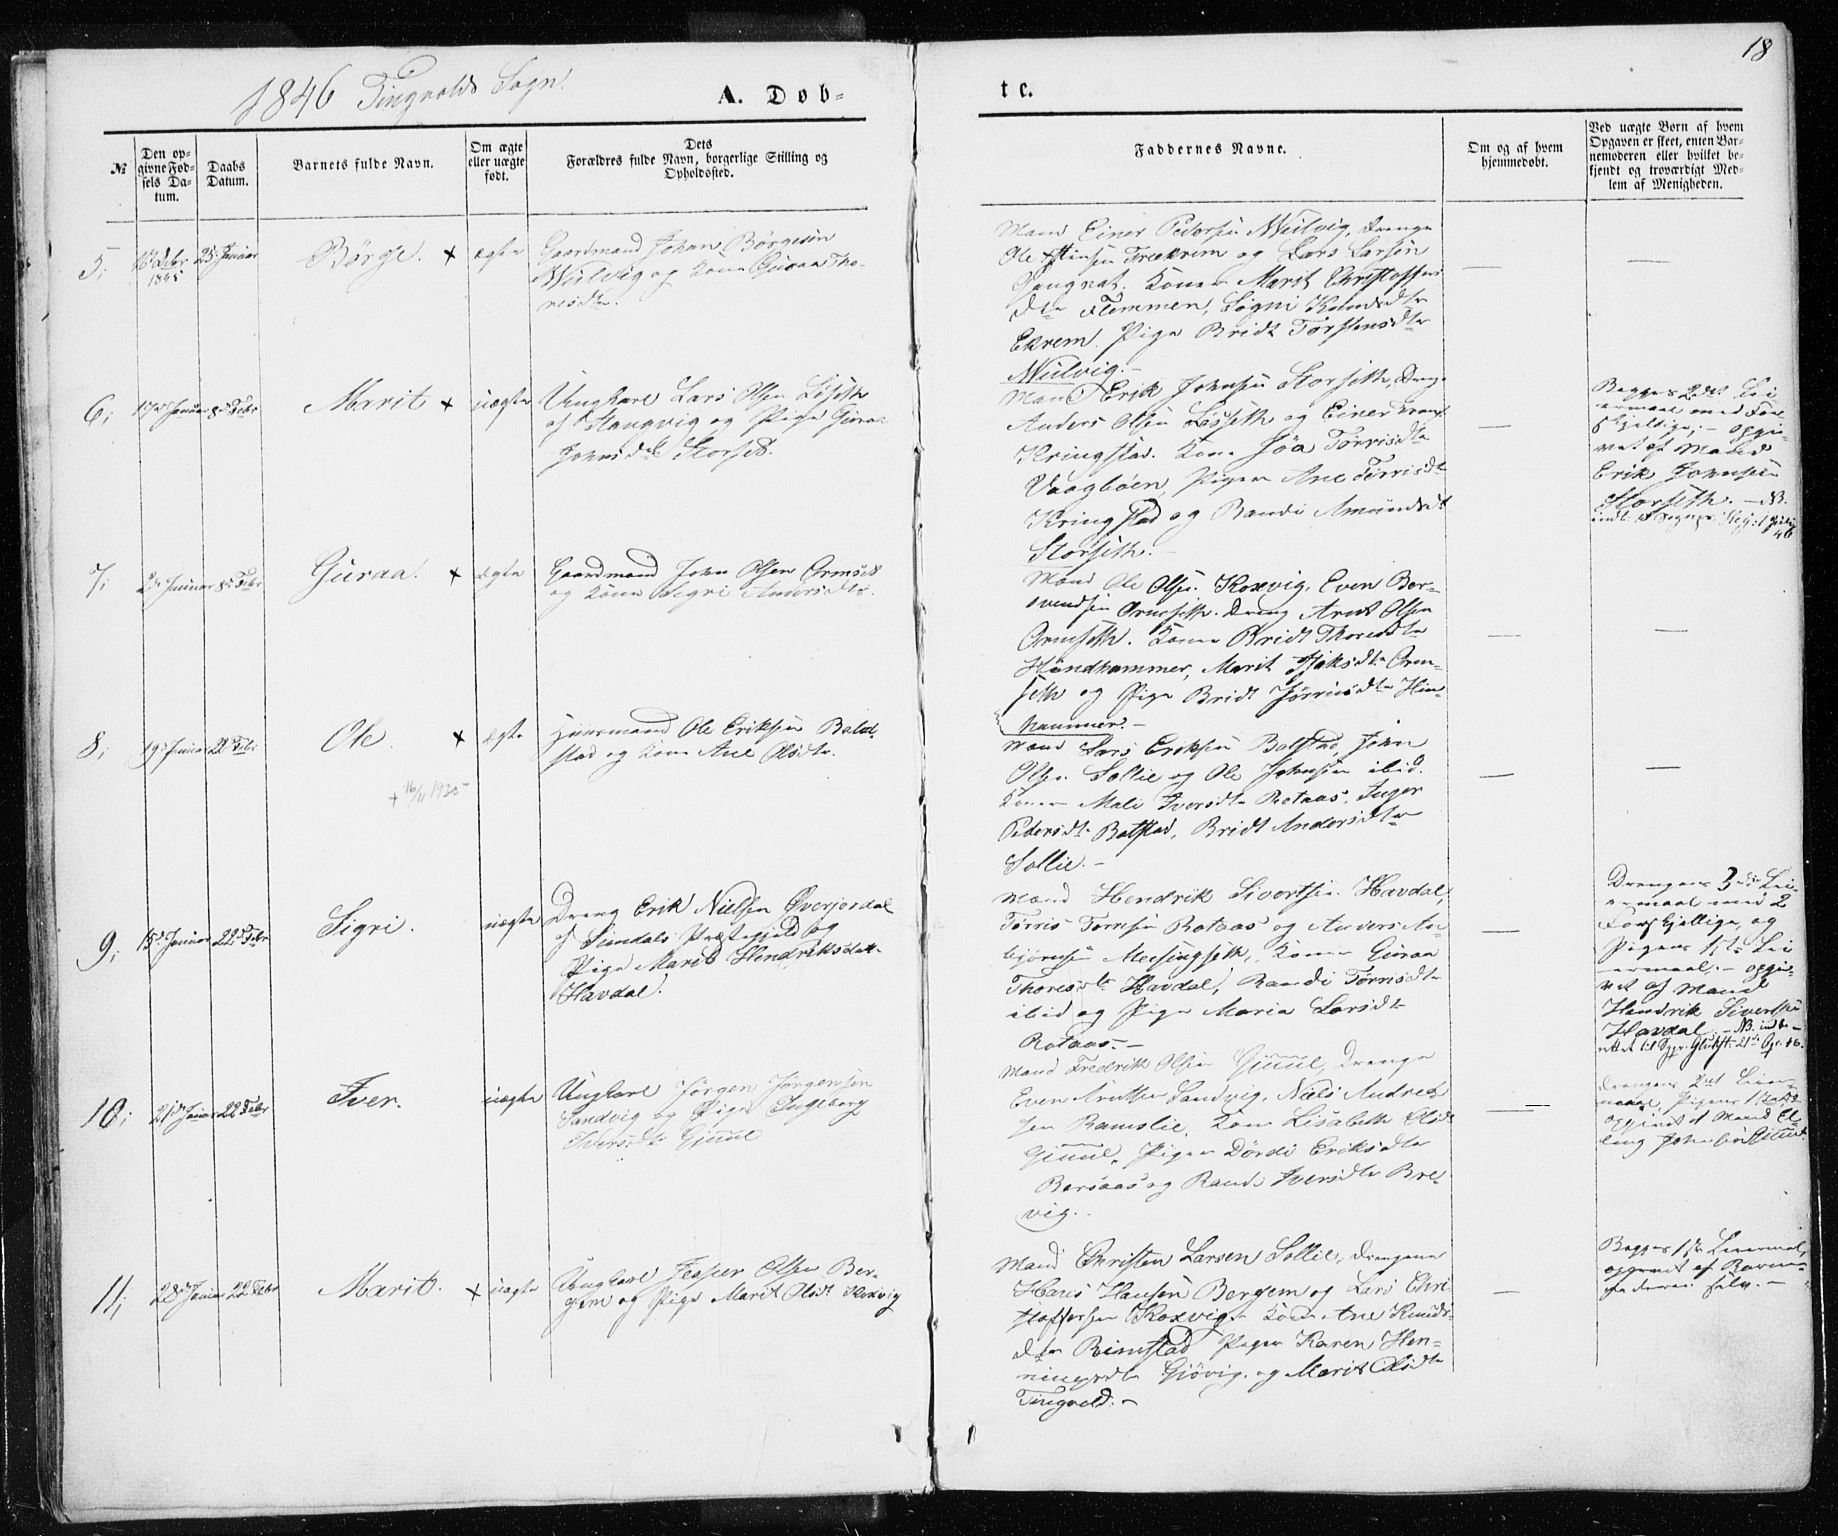 18
1846 Tingvolds Sogn.
A. Døb-
te.
№
Den op-
givne Fød-
sels Da-
tum.
Daabs
Datum.
Barnets fulde Navn.
Om ægte
eller uægte
født.
Dets
Forældres fulde Navn, borgerlige Stilling og
Opholdssted.
Faddernes Navne.
Om og af hvem
hjemmedøbt.
Ved uægte Børn af hvem
Opgaven er skeet, enten Bar-
nemoderen eller hvilket be-
kjendt og troværdigt Med-
lem af Menigheden.
5,
Debr
1845
25 Januar
Börge. +
ægte
Gaardmand Johan Börgesön
Wulvig og Kone Guraa Tho-
resdtr.
Mand Einer Pedersen Wulvig, Drenge
Ole Trækrem og Lars Larsen
Sangnat. Koner Marit Christoffers
dtr Flemmen, Signi Knudsdtr
Ekrem. Pige Bridt Torstensdtr
Wulvig.-
6,
17de Januar
8de Febr
Marit +
uægte
Ungkarl Lars Olsen Löseth
af Stangvig og Pige Guraa
Johnsdtr Storset.
Mand Erik Johnsen Storseth, Dreng
Anders Olsen Löseth og Einer
Kringstad. Kone Töa Törrisdtr
Vaagböen, Piger Ane Törrisdtr
Kringstad og Randi Amundsdtr
Storseth.-
Begges 2det Lei
ermaal med For
skjellige; - opgi-
vet af Mand
Erik Johnsen
Storseth. - NB.
7,
Januar
8de Febr
Guraa. +
ægte
Gaardmand John Olsen Ormset
og Kone Sigri Andersdtr.
Mænd Ole Olsen Koxvig, Even Ber-
svendsen Ormseth. Dreng Arnt Olsen
Ormseth. Koner Bridt Thoresdtr
Hündhammer, Marit Orm-
seth og Pige Bridt Jörrisdtr Hün
hammer.-
8,
19de Januar
22 Febr
Ole. +
+ 16/11 1930-
ægte
Huusmand Ole Eriksen Bald-
stad og Kone Ane Olsdtr.
Mænd Lars Eriksen Balstad, John
Olsen Sollie og Ole Johnsen ibid.
Koner Mali Iversdtr Rotaas, Inger
Pedersdtr Balstad, Bridt Andersdtr
Sollie.-
9,
15de Januar
22 Febr
Sigri.
uægte
Dreng Erik Nielsen Overjordal
af Sundals Præstegjeld og
Pige Marit Hendriksdatr.
Havdal.
Mænd Hendrik Sivertsen Havdal,
Törris Torresen Rotaas og Anders An-
björnsen Meisingseth, Koner Guraa
Thoresdtr Havdal, Randi Törrisdtr
ibid og Pige Maria Larsdtr
Rotaas.-
Drengens 3die Lei-
ermaal med 2
Forskjellige, og
Pigens 1ste Lei
ermaal. - opgi-
vet af Mand
Hendrik Sivertsen
Havdal. - NB. indbe-
10,
21de Januar
22 Febr
Iver.
uægte
Ungkarl Jörgen Jörgensen
Sandvig og Pige Ingeborg
Iversdtr Gjuul
Mand Fredrik Olsen Gjuul, Drenge
Even Arntsen Sandvig, Niels Andrea
sen Ramslie, Kone Lisabeth Olsdtr
Gjuul, Piger Dördi Eriksdtr
Bersaas og Randi Iversdtr Bre-
vig.
Drengens 2det Leier-
maal, Pigens 1ste
opgivet af Mand El-
ling Johnsen Gjuul.
11,
22de Januar
22 Febr
Marit. +
uægte
Ungkarl Jesper Olsen Ber-
gem og Pige Marit Olsdtr Koxvig
Mand Christen Larsen Sollie, Drengene
Hans Hansen Bergem og Lars Chri
stoffersen Koxvig. Kone Ane Knuds-
dtr Rimstad Piger Karen Hen-
ningsdtr Giövig, og Marit Olsdtr
Tingvold.-
Begges 1ste Leiermaal,
opgivet af Barne-
moderen selv.-